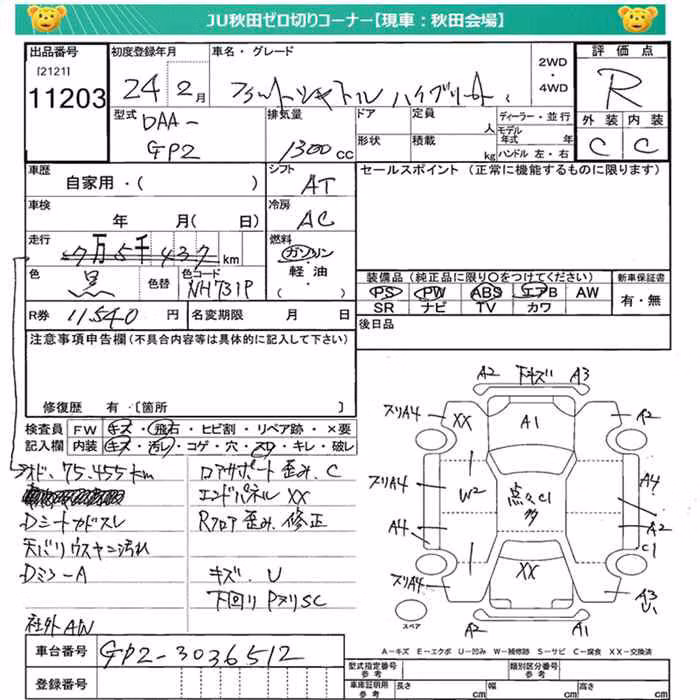 JU秋田ゼロ切りコーナー【現車：秋田会場】
出品番号
[2121]
11203
初度登録年月
24 2月
車名・グレード
フィットシャトル ハイブリッド
2WD
・
4WD
評価点
R
型式
DAA-
GP2
排気量
1300cc
ドア
定員
人
ディーラー・並行
モデル年式
年
形状
積載
kg
ハンドル 左・右
外装
内装
C
C
車歴
自家用・( )
シフト
AT
セールスポイント (正常に機能するものに限ります)
車検
年 月( 日)
冷房
AC
走行
7万5千437km
燃料
ガソリン
・
軽油・
( )
色
黒
色替
色コード
NH731P
装備品(純正品に限り○をつけてください)
PS PW ABS エアB AW
SR ナビ TV カワ
新車保証書
有・無
R券
11540円
名変期限 月 日
後日品
注意事項申告欄(不具合内容等は具体的に記入して下さい)
修復歴 有・〔箇所 〕
検査員
記入欄
FW キズ・飛石・ヒビ割・リペア跡・×要
内装 キズ・汚レ・コゲ・穴・スレ・キレ・破レ
メーター 75,455km
Dシートカドスレ
天バリウスキニ汚れ
社外AW
コアサポート歪み、C
エンドパネルXX
Rフロア歪み、修正
キズ、U
下回りPヌリSC
A2 下キズ A3
ズリA4
XX
A1
A2
ズリA4
W2
点々C1
多
A4
A4
A2
C1
ズリA4
XX
A3
U1
スペア
A2
A1
A－キズ E－エクボ U－凹み W－補修跡 S－サビ C－腐食 XX－交換済
車台番号
GP2-3036512
登録番号
型式指定番号
参考
類別区分番号
参考
車庫証明用
参考
長さ
cm
幅
cm
高さ
cm